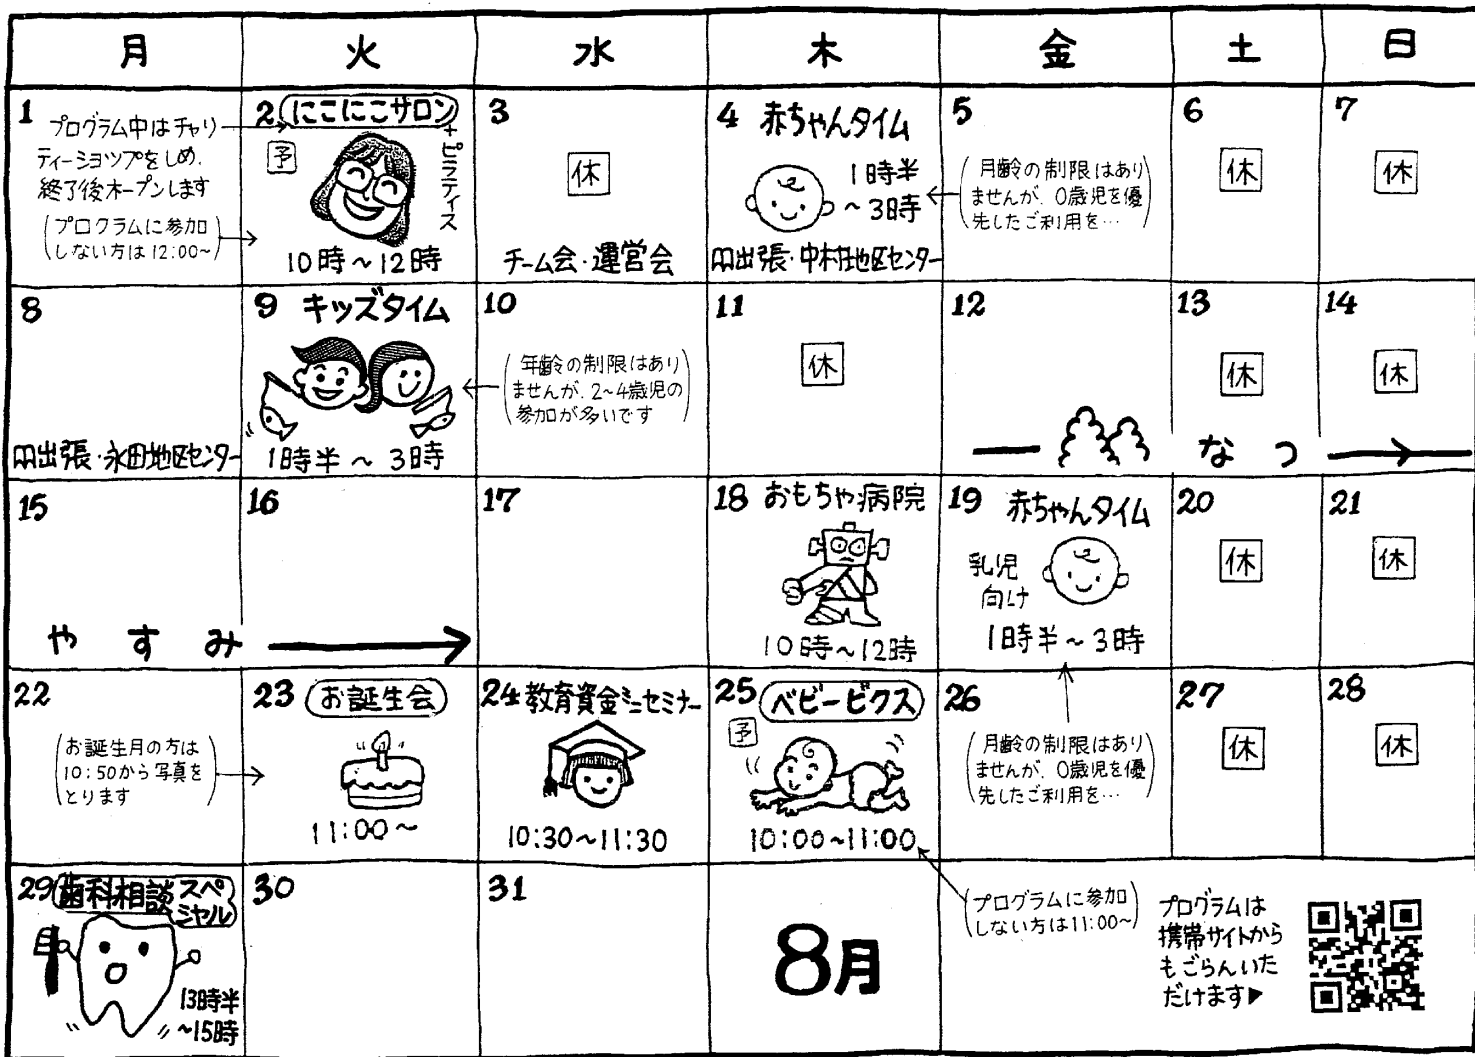 月 火 水 木 金 土 日
1
プログラム中はチャリ
ティーショップをしめ、
終了後オープンします
(プログラムに参加
しない方は12:00~)
2 にこにこサロン
+ピラティス
予
10時~12時
3
休
チーム会・運営会
4 赤ちゃんタイム
1時半
~3時
出張・中村地区センター
5
(月齢の制限はあり
ませんが、0歳児を優
先したご利用を…)
6
休
7
休
8
出張・永田地区センター
9 キッズタイム
1時半~3時
10
(年齢の制限はあり
ませんが、2~4歳児の
参加が多いです)
11
休
12
13
休
14
休
なつ
15
16
17
やすみ
18 おもちゃ病院
10時~12時
19 赤ちゃんタイム
乳児
向け
1時半~3時
20
休
21
休
22
(お誕生月の方は
10:50から写真を
とります)
23 お誕生会
11:00~
24 教育資金ミニセミナー
10:30~11:30
25 ベビービクス
予
10:00~11:00
26
(月齢の制限はあり
ませんが、0歳児を優
先したご利用を…)
27
休
28
休
29 歯科相談スペ
シャル
13時半
~15時
30
31
8月
(プログラムに参加
しない方は11:00~)
プログラムは
携帯サイトから
もごらんいた
だけます▶